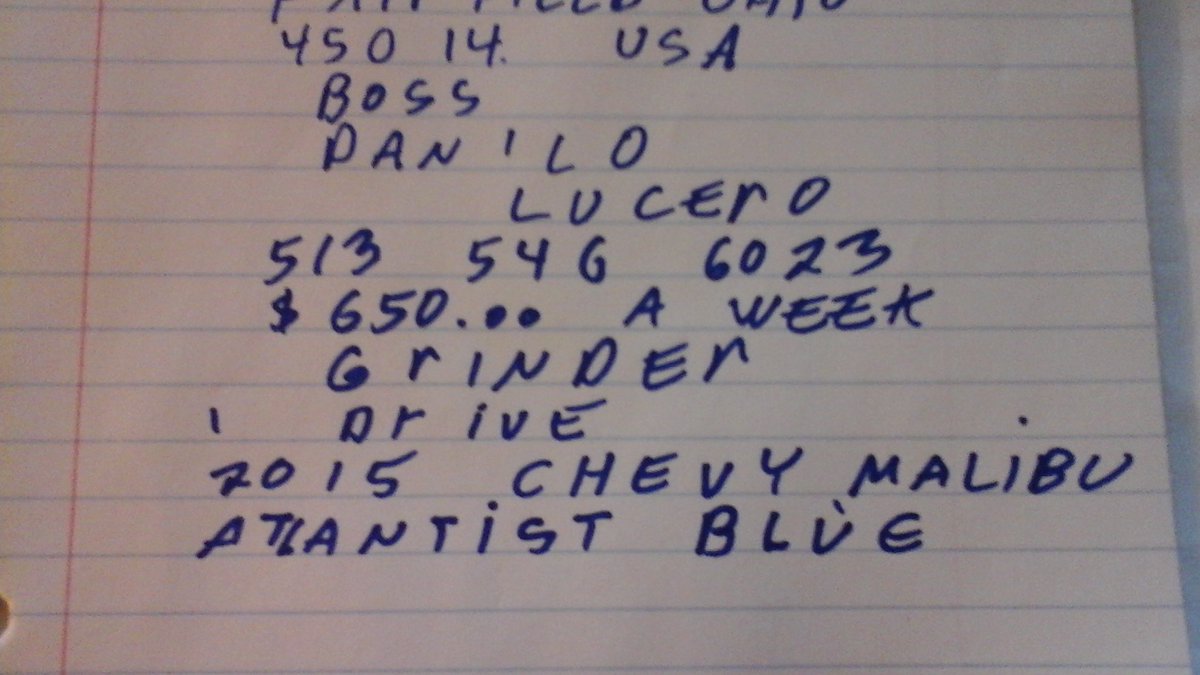 450 14. USA
BOSS
DANILO
LUCErO
513 546 6023
$ 650.00 A WEEK
GrINDEr
I DrIVE
2015 CHEVY MALIBU
ATLANTIST BLUE